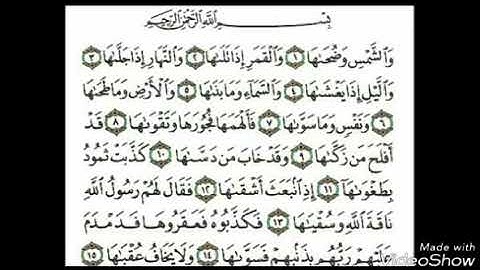 بِسْمِ اللَّهِ الرَّحْمَٰنِ الرَّحِيمِ
وَالشَّمْسِ وَضُحَىٰهَا ١ وَالْقَمَرِ إِذَا تَلَىٰهَا ٢ وَالنَّهَارِ إِذَا جَلَّىٰهَا ٣
وَالَّيْلِ إِذَا يَغْشَىٰهَا ٤ وَالسَّمَاءِ وَمَا بَنَىٰهَا ٥ وَالْأَرْضِ وَمَا طَحَىٰهَا
٦ وَنَفْسٍ وَمَا سَوَّىٰهَا ٧ فَأَلْهَمَهَا فُجُورَهَا وَتَقْوَىٰهَا ٨ قَدْ
أَفْلَحَ مَن زَكَّىٰهَا ٩ وَقَدْ خَابَ مَن دَسَّىٰهَا ١٠ كَذَّبَتْ ثَمُودُ
بِطَغْوَىٰهَا ١١ إِذِ انۢبَعَثَ أَشْقَىٰهَا ١٢ فَقَالَ لَهُمْ رَسُولُ اللَّهِ
نَاقَةَ اللَّهِ وَسُقْيَىٰهَا ١٣ فَكَذَّبُوهُ فَعَقَرُوهَا فَدَمْدَمَ
عَلَيْهِمْ رَبُّهُم بِذَنۢبِهِمْ فَسَوَّىٰهَا ١٤ وَلَا يَخَافُ عُقْبَىٰهَا ١٥
Made with
VideoShow